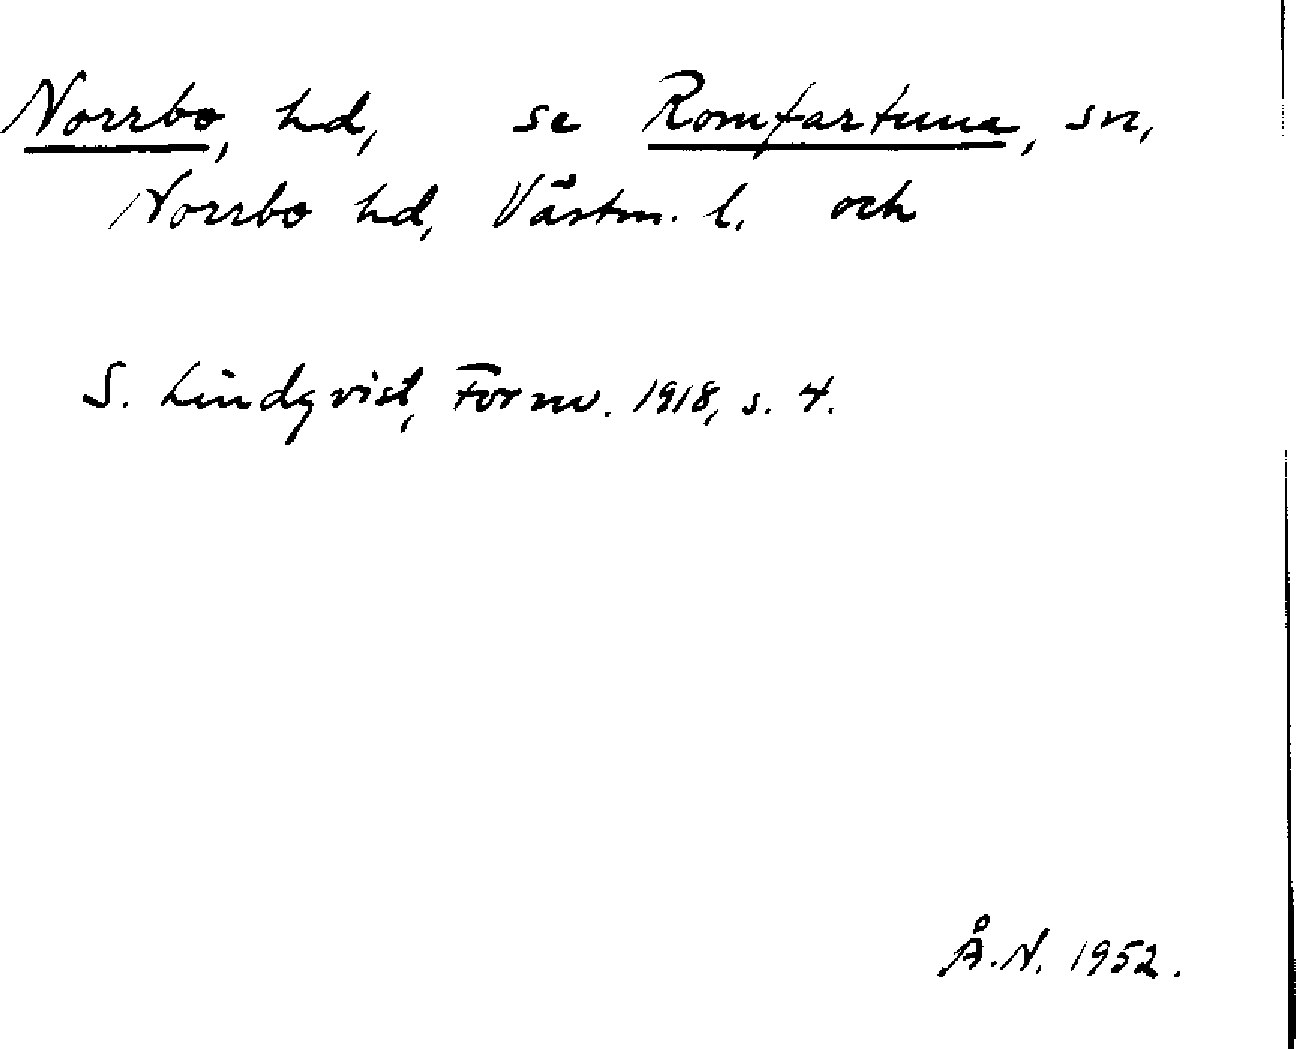 Norrbo, hd, se Romfartuna, sn,
Norrbo hd, Västm. l. och
S. Lindqvist, Fornv. 1918, s. 4.
Å.N. 1952.